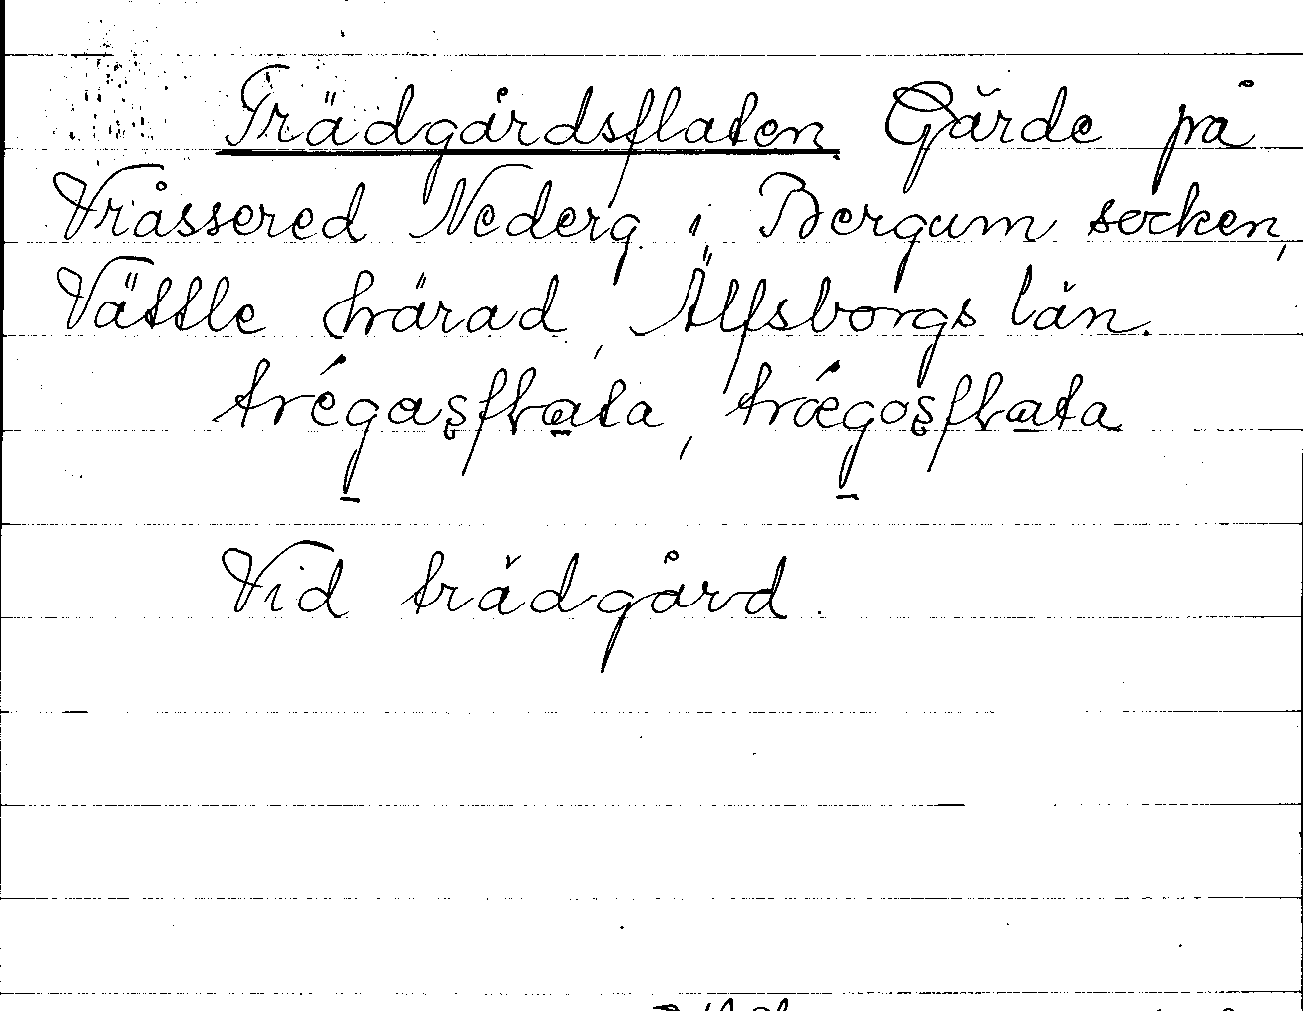 Trädgårdsflaten. Gärde på
Vråssered Nederg. i Bergum socken,
Vättle härad, Älfsborgs län.
trégasflata, trǽgosflata
Vid trädgård.